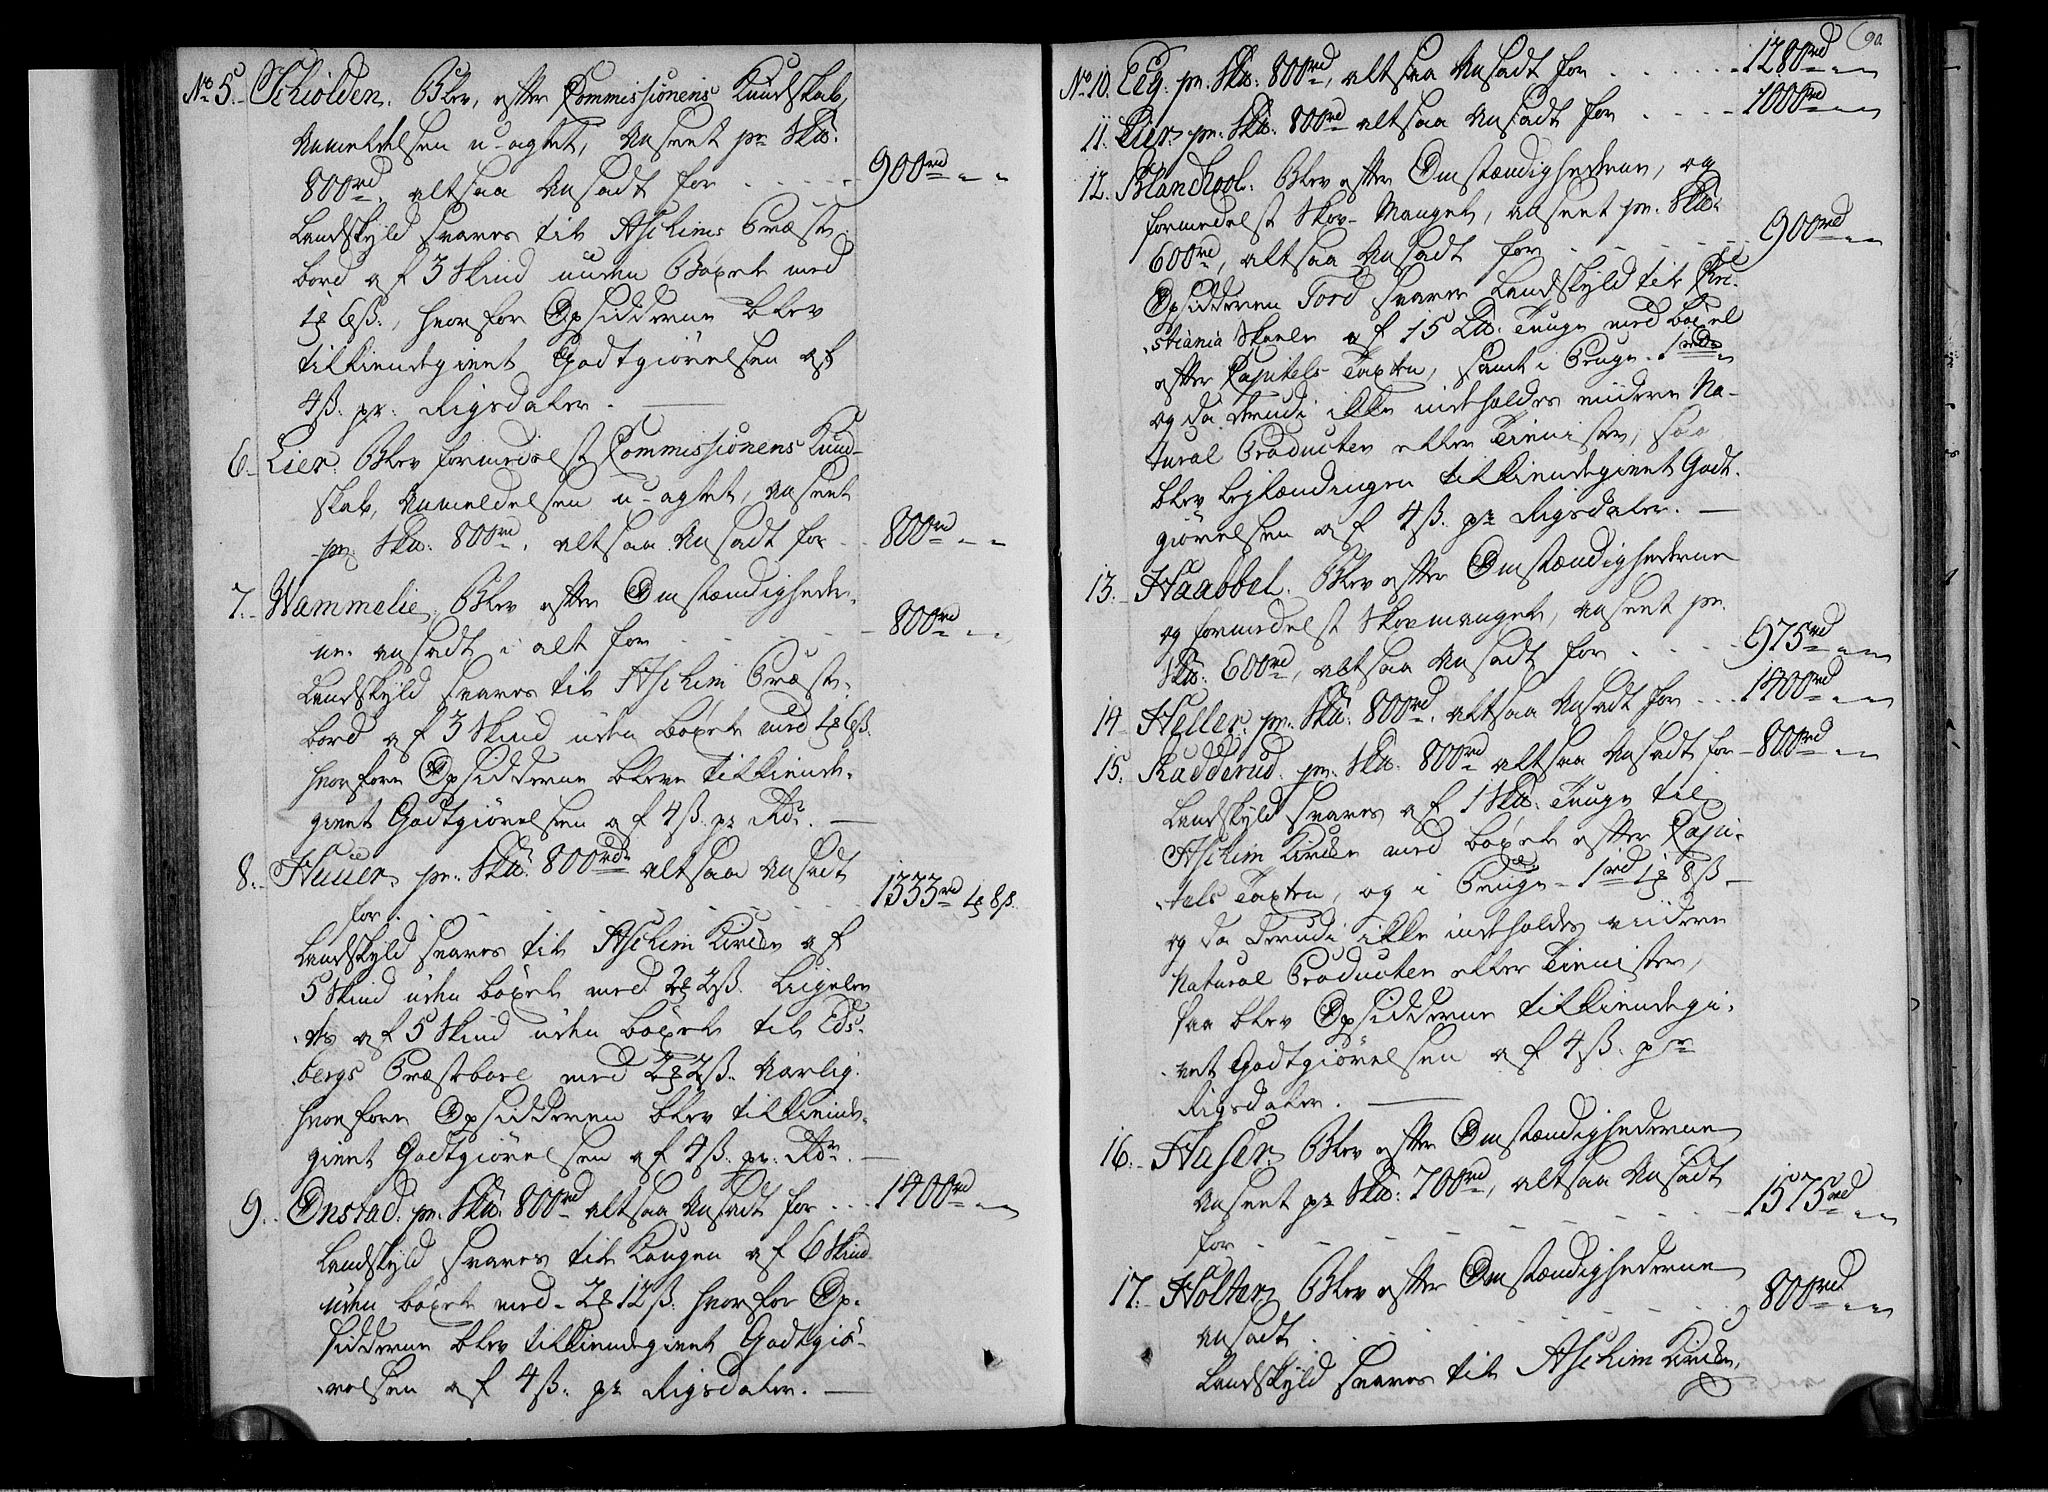 No 5. Schiolden. Blev, efter Commissionens Kundskab,
Anmeldelsen u-agtet, Anseet pr Skd:
800rd, altsaa Ansadt for - - - - - 900rd - -
Landskyld svares til Aschims Præste-
bord af 3 Skind uden Böxel med
1 6ß., hvorfor Opsidderne blev
tilkiendegivet Godtgiörelsen af
4ß. pr. Rigsdaler. —
6. Lier. Blev formedelst Commissionens Kund-
skab, Anmeldelsen u-agtet, Anseet
pr. Skd: 800rd. altsaa Ansadt for - - 800rd - -
7. Wammelie, Blev, efter Omstændighede-
ne. ansadt i alt for - - - - - 800rd - -
Landskyld svares til Aschim Præste-
bord af 3 Skind uden böxel med 6ß.
hvorfore Opsidderne bleve tilkiende-
givet Godtgiörelsen af 4ß. pr Rdr. —
8. Huuer, pr. Skd: 800rd altsaa Ansadt
for - - - - - - - - 1333rd 8ß.
Landskyld svares til Aschim Kirche af
5 Skind uden böxel med 2 2ß. Ligele-
des af 5 Skind uden böxel til Eds-
bergs Præstebord med 2 2ß. Aarlig.
hvorfore Opsidderen blev tilkiende-
givet Godtgiörelsen af 4ß. pr. Rdr. —
9. Onstad. pr. Skd: 800rd altsaa Ansadt for . . . 1400rd - -
Landskyld svares til Kongen af 6 Skind
uden böxel med - 2 12ß. hvorfor Op-
sidderne blev tilkiendegivet Godtgiö-
relsen af 4ß. pr Rigsdaler. —
90
No 10. Eeg. pr. Skd: 800rd, altsaa Ansadt for - - - - - 1280rd - -
11. Lier. pr. Skd: 800rd altsaa Ansadt for - - - - 1000rd - -
12. Blandhool. Blev efter Omstændighederne, og
formedelst Skov-Mangel, anseet pr. Skd:
600rd, altsaa Ansadt for - - - - - 900rd - -
Opsidderen Tord svarer Landskyld til Chri-
stiania Skoele af 15 Ld. Tunge med böxel
efter Capitels-Taxten, samt i Penge - 1rd -
og da derudi ikke indeholdes viidere Na-
tural Producter eller Tienister, saa
blev Leylændingen tilkiendegivet Godt-
giörelsen af 4ß. pr Rigsdaler. —
13. Haabbel. Blev efter Omstændighederne
og formedelst Skovmangel, anseet pr.
Skd: 600rd, altsaa Ansadt for - - - - 975rd - -
14 Heller. pr. Skd: 800rd, altsaa Ansadt for . . . 1400rd - -
15. Rudderud. pr. Skd. 800rd altsaa Ansadt for - 800rd - -
Landskyld svares af 1 Skd. Tunge til
Aschim Kirche med böxel efter Capi-
tels Taxten, og i Penge - 1rd 1 8ß -
og da derudi ikke indeholdes viidere
Natural Producter eller Tienister,
saa blev Opsidderne tilkiendegi-
vet Godtgiörelsen af 4ß. pr
Rigsdaler. —
16. Haser. Blev efter Omstændighederne
Anseet pr Skd: 700rd, altsaa Ansadt
for - - - - - - - 1575rd - -
17. Holter, Blev efter Omstændighederne
ansadt. - - - - - - 800rd - -
Landskyld svares til Aschim Kirche,